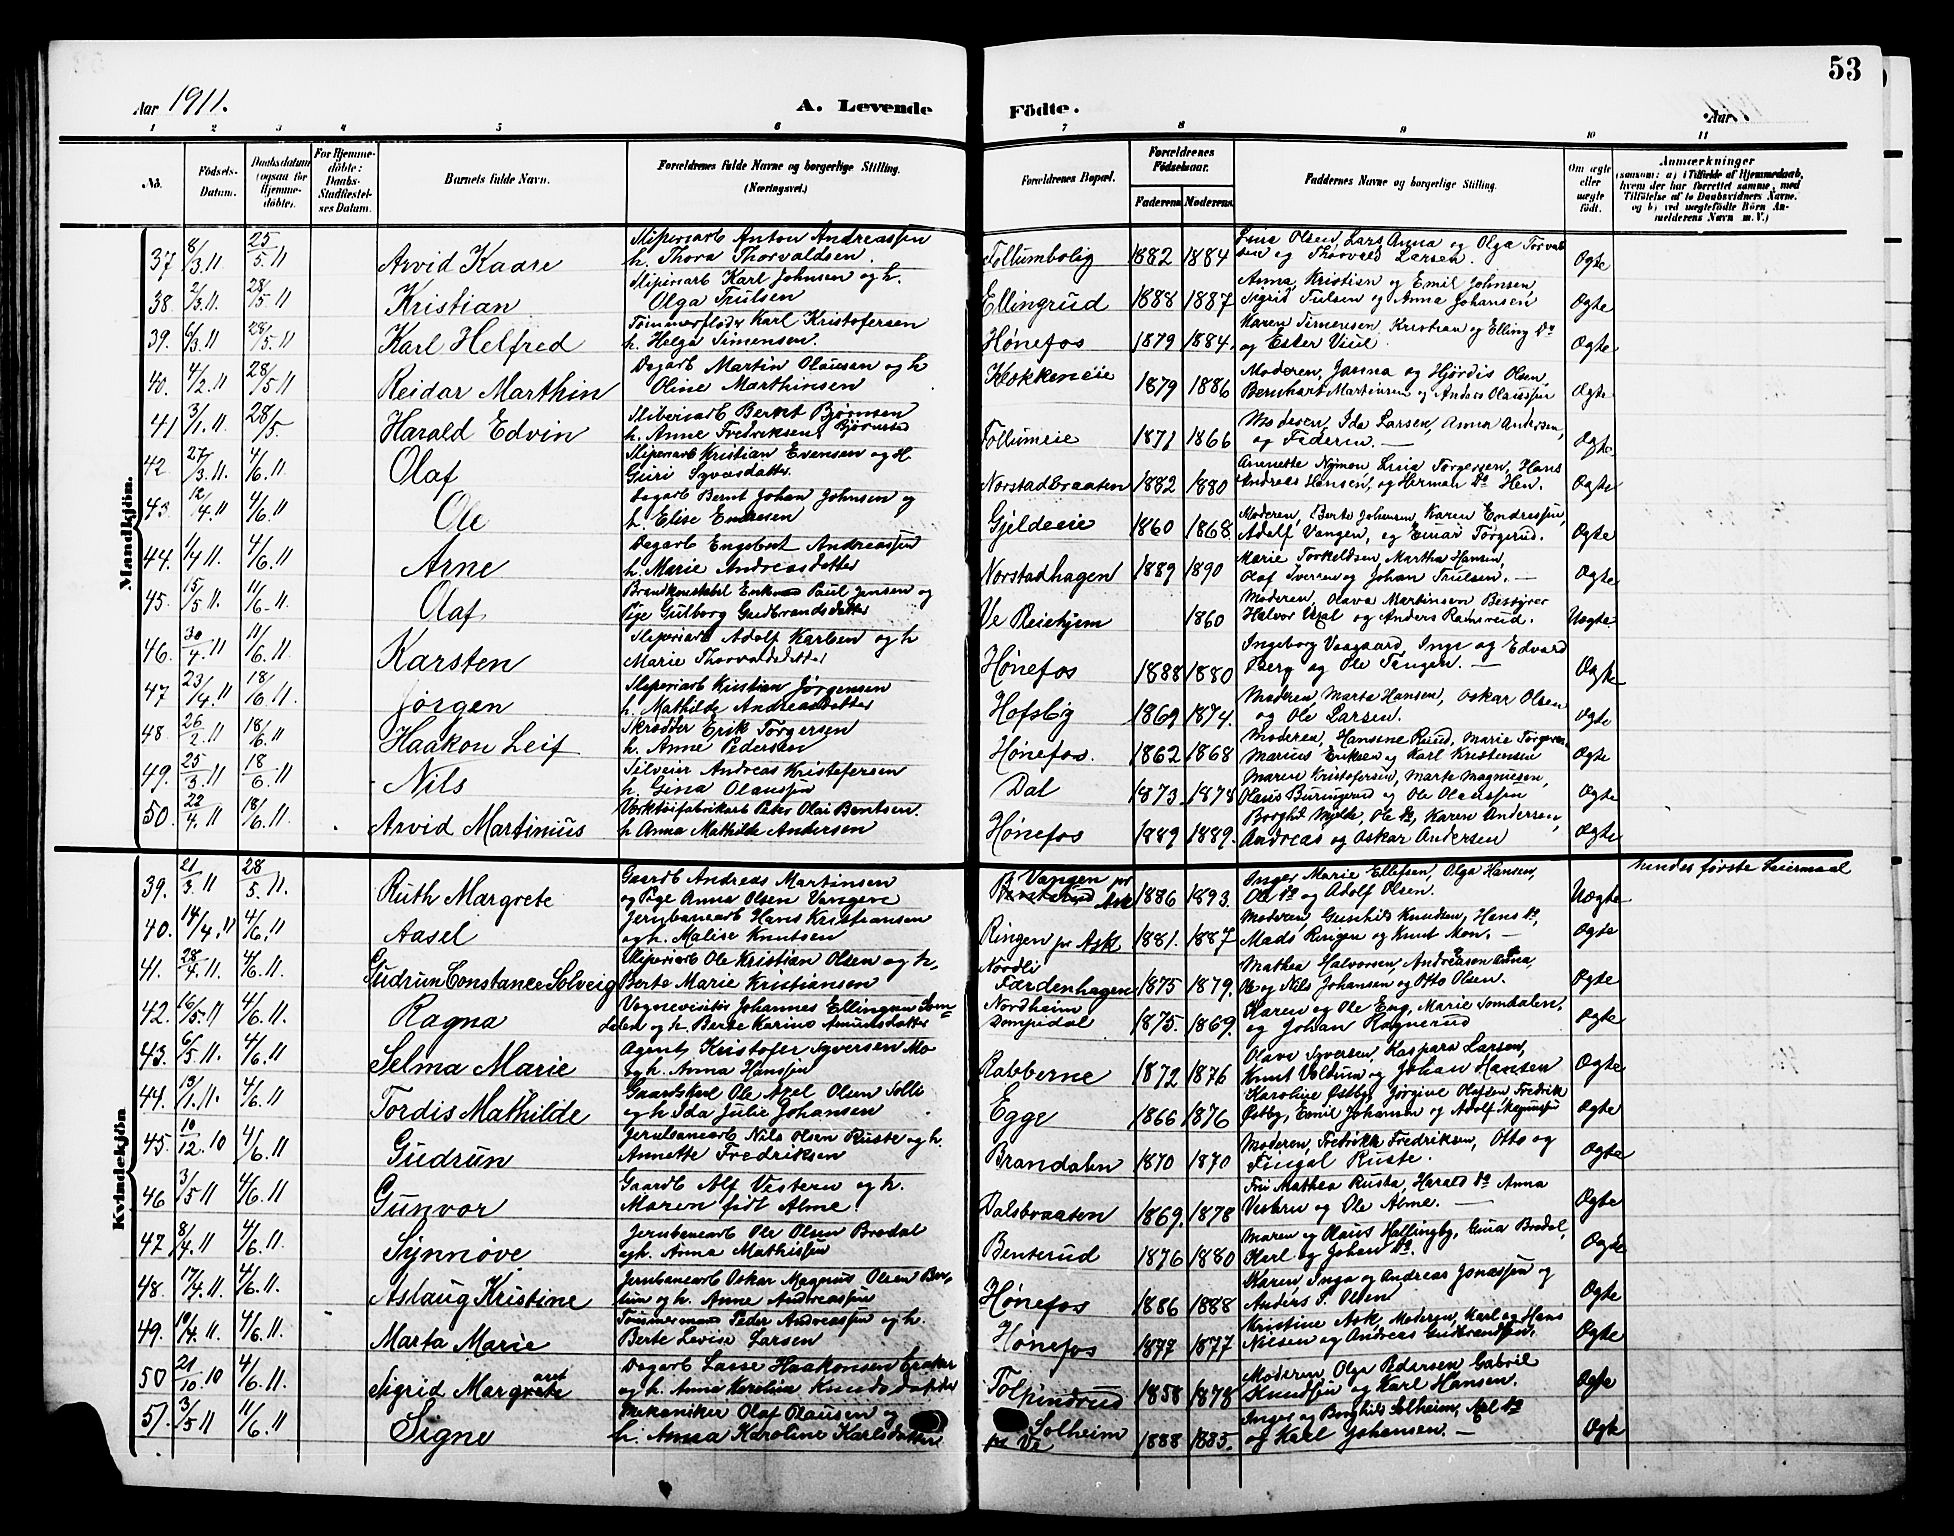 53
Aar 1911.
A. Levende Födte.
Aar
1 2 3 4 5 6 7 8 9 10 11
No.
Födsels-Datum.
Daabsdatum (ogsaa for Hjemme-döbte).
For Hjemme-döbte: Daabs-Stadfæstel-ses Datum.
Barnets fulde Navn.
Forældrenes fulde Navne og borgerlige Stilling. (Næringsvei.)
Forældrenes Bopæl.
Forældrenes Födselsaar.
Faderens Moderens
Faddernes Navne og borgerlige Stilling.
Om ægte eller uægte födt.
Anmærkninger
(saasom: a) i Tilfælde af Hjemmedaab, hvem der har forrettet samme, med Tilföielse af to Daabsvidners Navne, og b) ved uægtefödte Börn Anmelderens Navn m. V.)
Mandkjön.
37 8/3 11 25/5 11 Arvid Kaare Sliperiarb Anton Andreassen h. Thora Thorvaldsen. Follumbolig 1882 1884 Lina Olsen, Lars Anna og Olga Torvaldsen og Thorvald Larsen. Ægte
38. 2/3 11 28/5 11 Kristian Sliperiarb Karl Johnsen og h. Olga Trulsen Ellingrud 1888 1887 Anna, Kristian og Emil Johnsen, Sigrid Tulsen og Anna Johansen Ægte
39. 6/3 11 28/5 11 Karl Helfred Tømmerfløder Karl Kristofersen h. Helga Simensen. Hønefos 1879 1884. Maren Simensen, Kristian og Elling Do og Ester Viul. Ægte
40. 4/2 11 28/5 11 Reidar Marthin Dagarb Martin Olausen og h Oline Marthinsen Klokkereie 1879 1886 Moderen, Janna og Hjørdis Olsen, Bernhart Martinsen og Anders Olaussen Ægte
41 3/1 11. 28/5. Harald Edvin Sliberiarb Bernt Bjørnsen h. Anne Fredriksen Bjørnstad Follumeie 1871 1866 Moderen, Ida Larsen, Anna Andersen, og Faderen. — Ægte
42. 27/3 11. 4/6 11 Olaf Sliperiarb Kristian Evensen og H Guri Syversdatter Norstadbraaten 1882 1880 Annette Nymon, Lina Torgersen, Hans Andreas Hansen, og Herman Do Hen. Ægte
43. 12/4 11 4/6 11 Ole Dagarb Bernt Johan Johnsen og h. Elise Endresen Gjeldereie 1860 1868 Moderen, Berte Johansen, Karen Endressen, Adolf Vangen, og Einar Torgerud. Ægte
44. 1/4 11 4/6. 11 Arne Dagarb Engebret Andreassen h. Marie Andreasdatter Norstadhagen 1889 1890 Marie Torkeldsen, Martha Hansen, Olaf Iversen og Johan Trulsen. — Ægte
45. 15/5 11. 11/6. 11. Olaf Brandkonstabel Enkem Paul Jensen og Pige Gulborg Gudbrandsdatter Ve Reiehjem 1860 Moderen, Olava Martinsen Bestyrer Halvor Uxal og Anders Ramsrud. Uægte
46. 30/4 11 11/6. 11. Karsten Sliperiarb Adolf Karlsen og h Marie Thorvaldsdatter Hønefos 1888 1880 Ingeborg Vaagaard, Inge og Edvard Berg og Ole Tingen. — Ægte
47 23/4 11 18/6 11. Jørgen Sliperiarb Kristian Jørgensen h. Mathilde Andreasdatter Hofsby 1869 1874. Moderen, Marta Hansen, Oskar Olsen og Ole Larsen. Ægte
48. 26/2. 11 18/6. 11 Haakon Leif Skrædder Erik Torgersen h. Anne Pedersen Hønefos. 1862 1868 Moderen, Hansine Ruud, Marie Torgersen, Marius Eriksen og Karl Kristensen Ægte
49. 25/3. 11 18/6. 11 Nils Silveier Andreas Kristofersen h. Gina Olaussen Dal 1873 1878 Maren Kristofersen, Marte Magnusen, Olaus Burungerud og Ole Olaussen Ægte
50. 22/4. 11 18/6. 11 Arvid Martinius Værktøifabrikarb Peter Olai Bentsen. h. Anna Mathilde Andersen Hønefos 1889 1889. Borghild Mylde, Ole Do, Karen Andersen, Andreas og Oskar Andersen Ægte
Kvindekjön
39. 21/3. 11 28/5. 11. Ruth Margrete Gaardb Andreas Martinsen og Pige Anna Olsen Vangen Vangen pr Ask 1886 1893. Inger Marie Ellefsen, Olga Hansen, Ole Do og Adolf Olsen. Uægte hendes første Leiermaal
40. 14/4. 11 4/6. 11 Aasel Jernbanearb Hans Kristiansen og h. Malise Knutsen Ringen pr Ask 1881. 1887 Moderen, Gunhild Knudsen, Hans Do, Mads Ringen og Knut Mon. — Ægte
41. 28/4. 11. 4/6. 11 Gudrun Constance Solveig Sliperiarb Ole Kristian Olsen og h, Berte Marie Kristiansen Nordli Færdenhagen 1875 1879. Mathea Halvorsen, Andreasen Anna, Ole og Nils Johansen og Otto Olsen. Ægte
42. 16/5 11 4/6. 11. Ragna Vognevisitør Johannes Ellingsen Somdalen og h. Berte Karine Amundsdatter Nordheim Sompidal 1875. 1869. Karen og Ole Eng, Marie Somdalen, og Johan Ragnerud Ægte
43. 6/5 11. 4/6. 11 Selma Marie Agent Kristofer Syversen Mo og h. Anna Hanssen Rabberne 1872 1876 Olava Syversen, Kaspara Larsen, Knut Veldrum og Johan Hansen Ægte
44. 13/1. 11. 4/6. 11 Tordis Mathilde Gaardskarl Ole Axel Olsen Solli og h Ida Julie Johansen Egge 1866 1876 Karoline Østby, Jørgine Olafsen Fredrik Østby, Emil Johansen og Adolf Magnussen Ægte
45. 10/12. 10 4/6 11 Gudrun Jernbanearb Nils Olsen Ruste og h. Annette Fredriksen Brandalen 1870 1870 Moderen, Fredrikk Fredriksen, Otto og Fingal Ruste. Ægte
46 3/5 11 4/6. 11 Gunvor Gaardb Alf Vestern og h. Maren født Alme. Dalsbraaten 1869. 1878 Fru Mathea Rusta, Harald Do Anna Vestern og Ole Alme. — Ægte
47 8/4. 11 4/6. 11. Synnøve Jernbanearb Ole Olsen Brødal og h. Anna Mathissen Benterud 1876 1880 Maren og Olaus Hallingby, Gina Brødal, Karl og Johan Do. Ægte
48. 17/4. 11 4/6. 11. Aslaug Kristine Jernbanearb Oskar Magnus Olsen og h. Anne Andreassen Hønefos 1886 1888 Karen, Inga og Andreas Jonassen og Anders P. Olsen Ægte
49. 19/4. 11. 4/6. 11 Marta Marie Tømmermand Peder Andreassen og h. Berte Lovise Larsen Hønefos 1877 1877 Kristine Ask, Moderen, Karl og Hans Nilsen og Andreas Gudbrandsen. Ægte
50 21/10. 10 4/6. 11. Sigrid Margrete aret Dagarb Lasse Haakonsen og h. Anna Karolina Knudsdatter 1858 1878 Moderen, Olga Pedersen Gabriel Knudsen og Karl Hansen. Ægte
51. 3/5 11 11/6. 11 Signe Mekaniker Olaf Olausen og h. Anna Karoline Karlsdatter Solheim pr Ve 1888 1885. Inger og Borghild Solheim, Axel Do og Karl Johansen. — Ægte